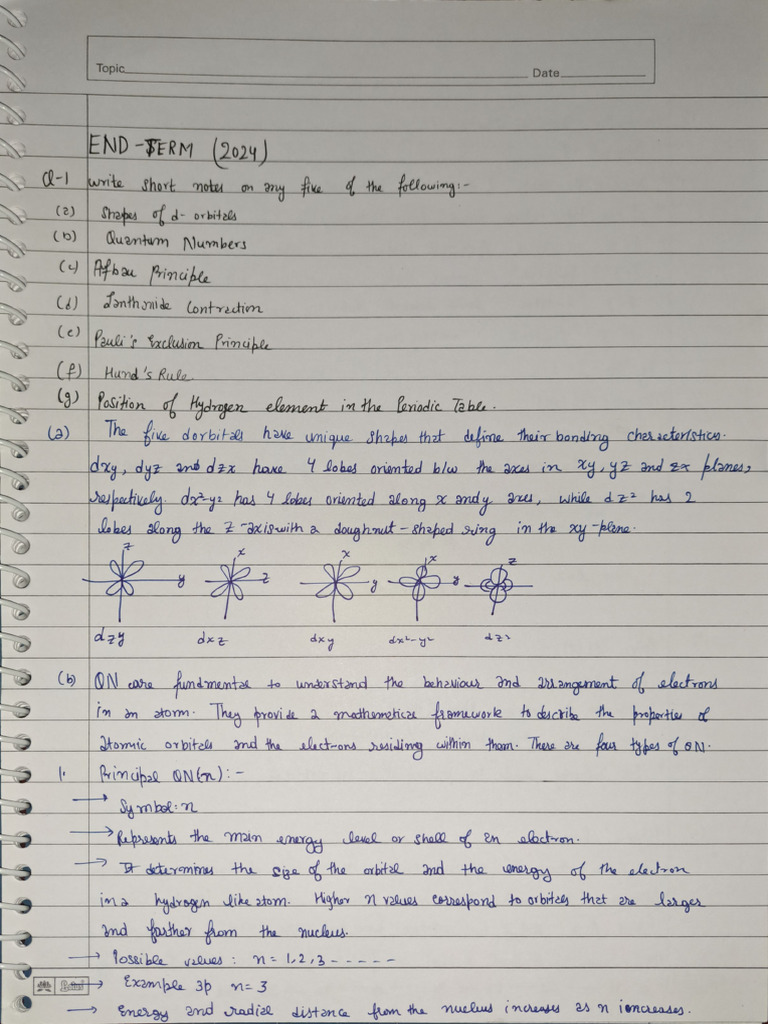 Topic Date
END-TERM (2024)
Q-1 Write short notes on any five of the following:-
(a) Shapes of d-orbitals
(b) Quantum Numbers
(c) Afbau Principle
(d) Lanthnide Contraction
(e) Pauli's Exclusion Principle
(f) Hund's Rule.
(g) Position of Hydrogen element in the Periodic Table.
(a) The five dorbitals have unique shapes that define their bonding characteristics.
dxy, dyz and dzx have 4 lobes oriented b/w the axes in xy, yz and zx planes,
respectively. dx²-y² has 4 lobes oriented along x and y axes, while dz² has 2
lobes along the z-axis with a doughnut-shaped ring in the xy-plane.
z x x x z
y z y y
dzy dxz dxy dx²-y² dz²
(b) QN are fundmental to understand the behaviour and arrangement of electrons
in an atom. They provide a mathematical framework to describe the properties of
atomic orbitals and the elect-ons residing within them. There are four types of QN.
1. Principal QN(n):-
→ Symbol: n
→ Represents the main energy level or shell of an electron.
→ It determines the size of the orbital and the energy of the electron
in a hydrogen like atom. Higher n values correspond to orbitals that are larger
and farther from the nucleus.
→ Possible values: n = 1, 2, 3 - - - - -
→ Example 3p n = 3
→ Energy and radial distance from the nucleus increases as n increases.